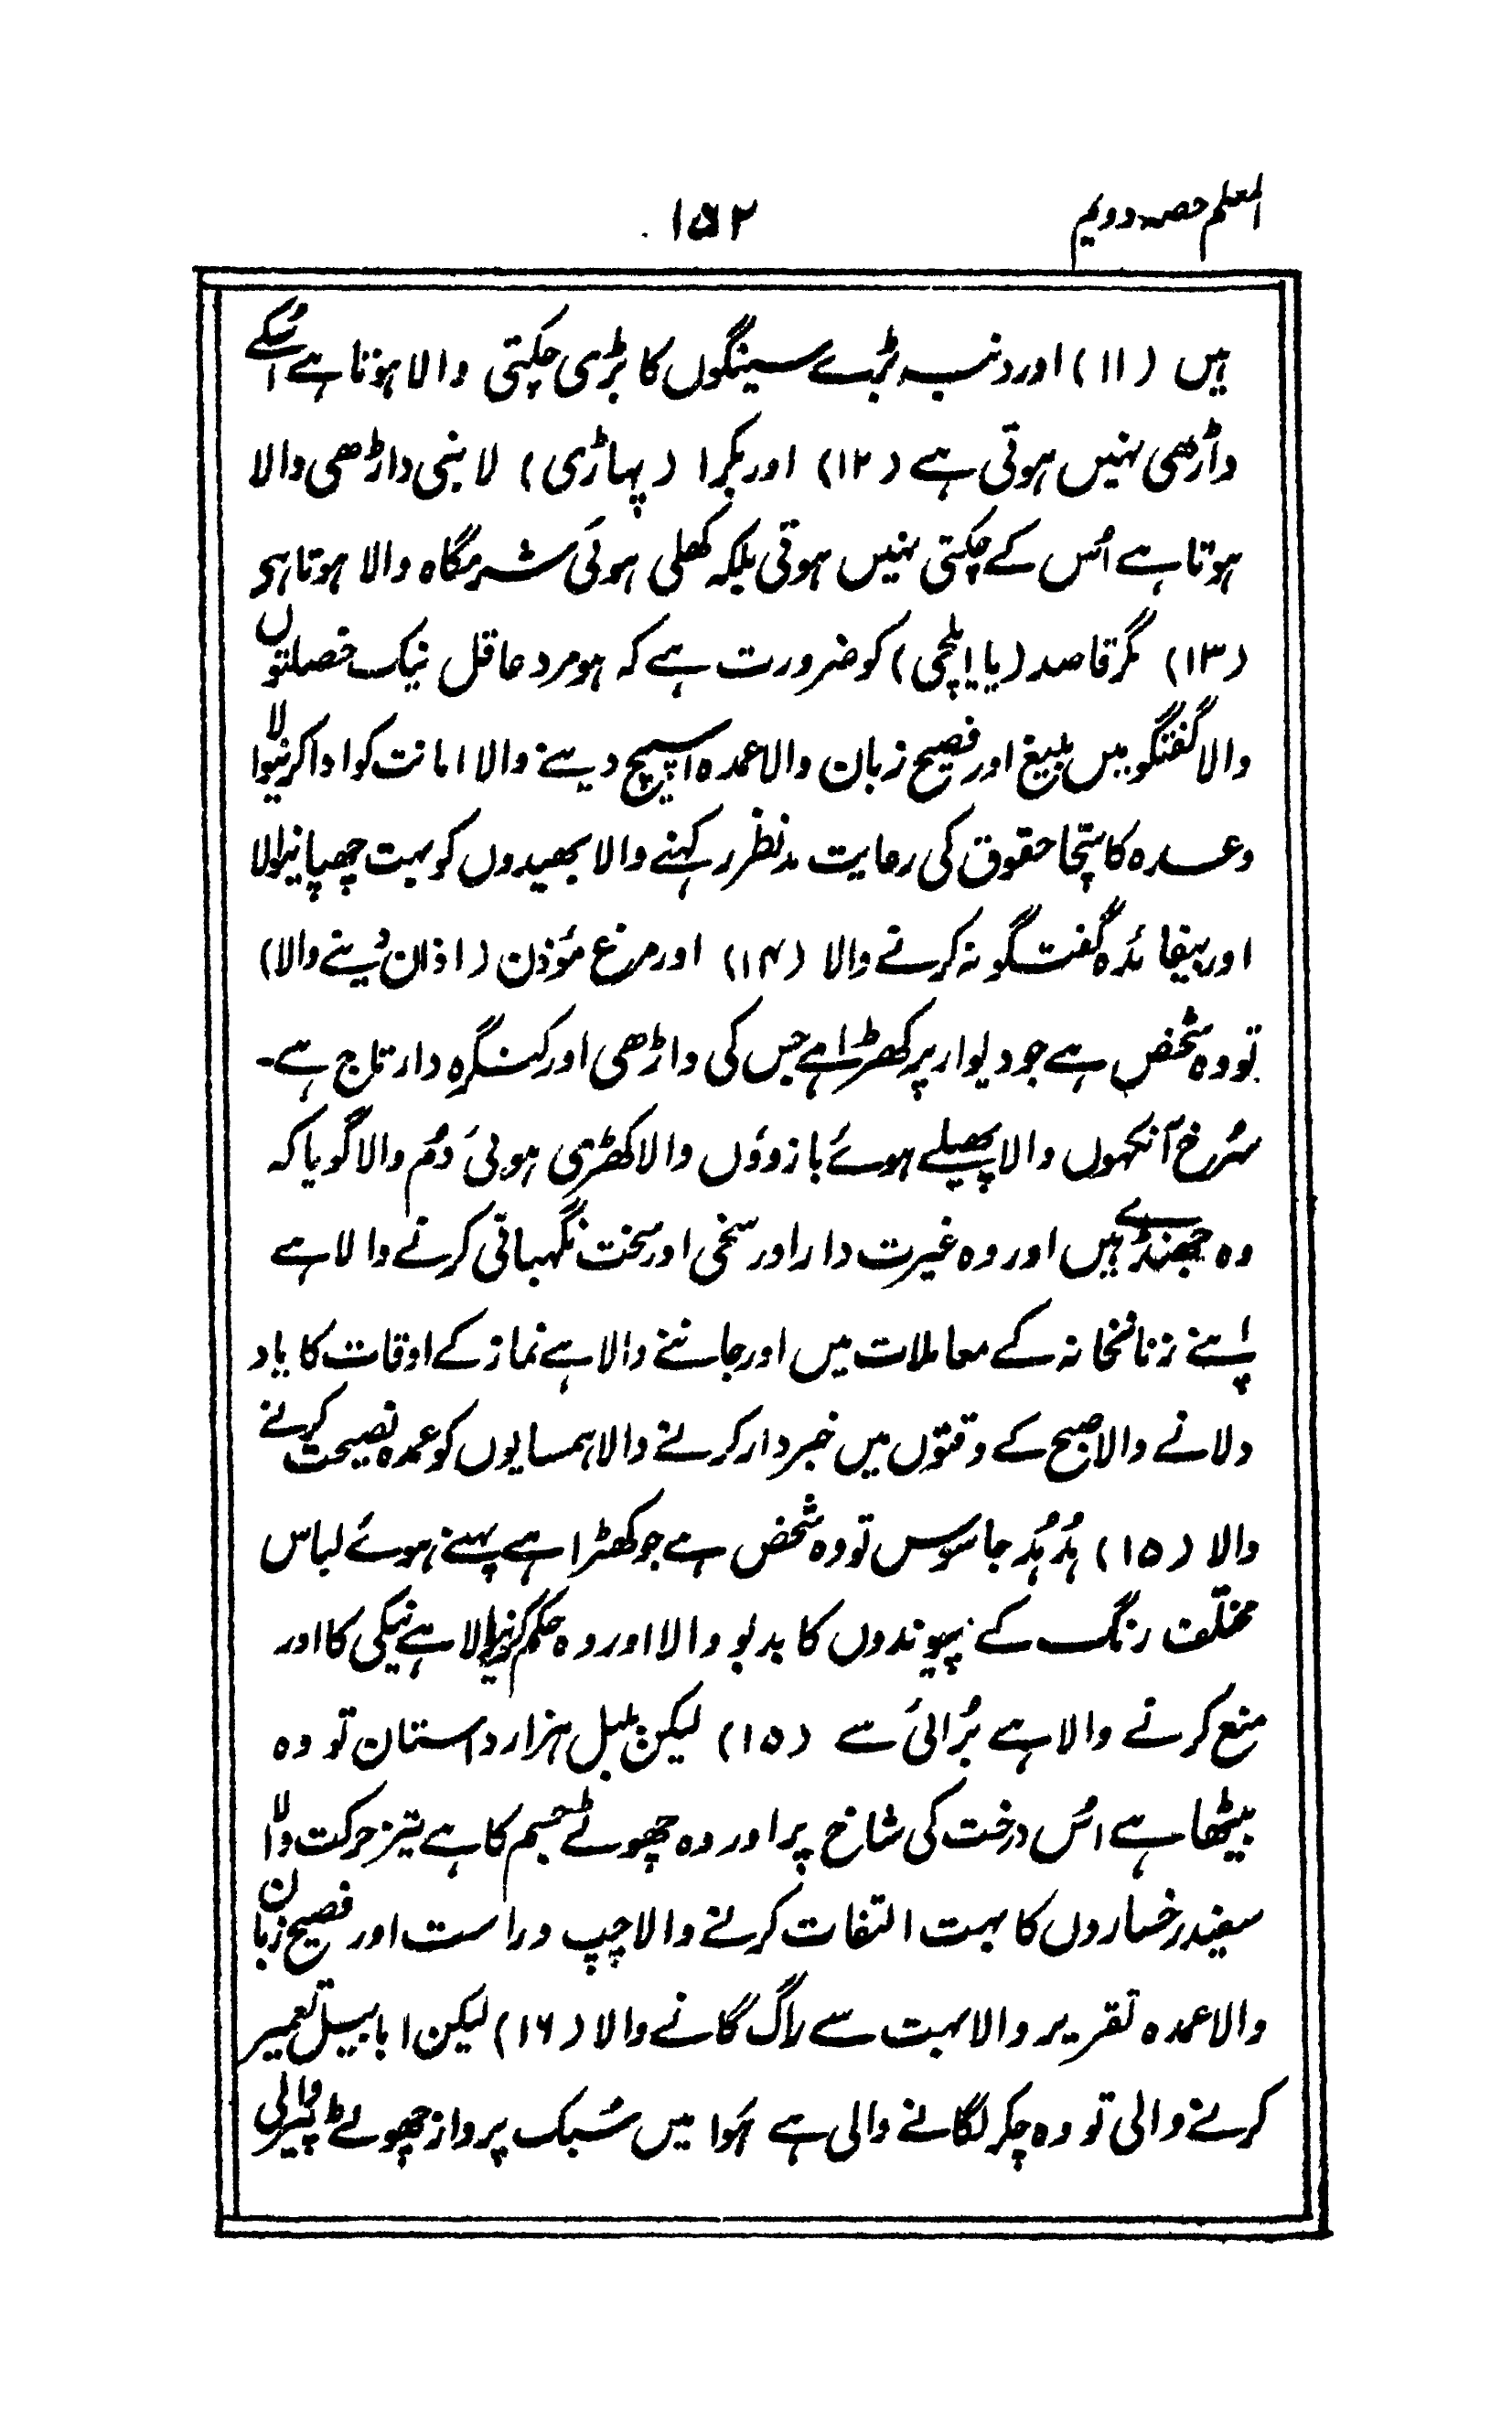 المعلم حصہ دویم
۱۵۲
ہیں (۱۱) اور دنبہ بڑے سینگوں کا بڑی چکتی والا ہوتا ہے اُسکے
داڑھی نہیں ہوتی ہے (۱۲) اور بکرا (پہاڑی) لانبی داڑھی والا
ہوتا ہے اُس کے چکتی نہیں ہوتی بلکہ کھلی ہوئی شرمگاہ والا ہوتا ہی
(۱۳) مگر قاصد (یا ایلچی) کو ضرورت ہے کہ ہو مرد عاقل نیک خصلتوں
والا گفتگو میں بلیغ اور فصیح زبان والا عمدہ اسپیچ دینے والا امانت کو ادا کرنیوالا
وعدہ کا سچّا حقوق کی رعایت مدنظر رکہنے والا بھیدوں کو بہت چھپانیوالا
اور بیفائدہ گفتگو نہ کرنے والا (۱۴) اور مرغ مؤذن (اذان دینے والا)
تو وہ شخص ہے جو دیوار پر کھڑا ہے جس کی داڑھی اور کنگرہ دار تاج ہے۔
سُرخ آنکہوں والا پھیلے ہوئے بازوؤں والا کھڑی ہوئی دُم والا گویا کہ
وہ جھنڈے ہیں اور وہ غیرت دار اور سخی اور سخت نگہبانی کرنے والا ہے
اپنے زنانخانہ کے معاملات میں اور جاننے والا ہے نماز کے اوقات کا یاد
دلانے والا صبح کے وقتوں میں خبردار کرنے والا ہمسایوں کو عمدہ نصیحت کرنے
والا (۱۵) ہُدہُد جاسوس تو وہ شخص ہے جو کھڑا ہے پہنے ہوئے لباس
مختلف رنگ کے پیوندوں کا بدبو والا اور وہ حکم کرنیوالا ہے نیکی کا اور
منع کرنے والا ہے بُرائی سے (۱۵) لیکن بلبل ہزار داستان تو وہ
بیٹھا ہے اُس درخت کی شاخ پر اور وہ چھوٹے جسم کا ہے تیز حرکت والا
سفید رخساروں کا بہت التفات کرنے والا چپ و راست اور فصیح زبان
والا عمدہ تقریر والا بہت سے راگ گانے والا (۱۶) لیکن ابابیل تعمیر
کرنے والی تو وہ چکر لگانے والی ہے ہَوا میں سُبک پرواز چھوٹے پیر والی